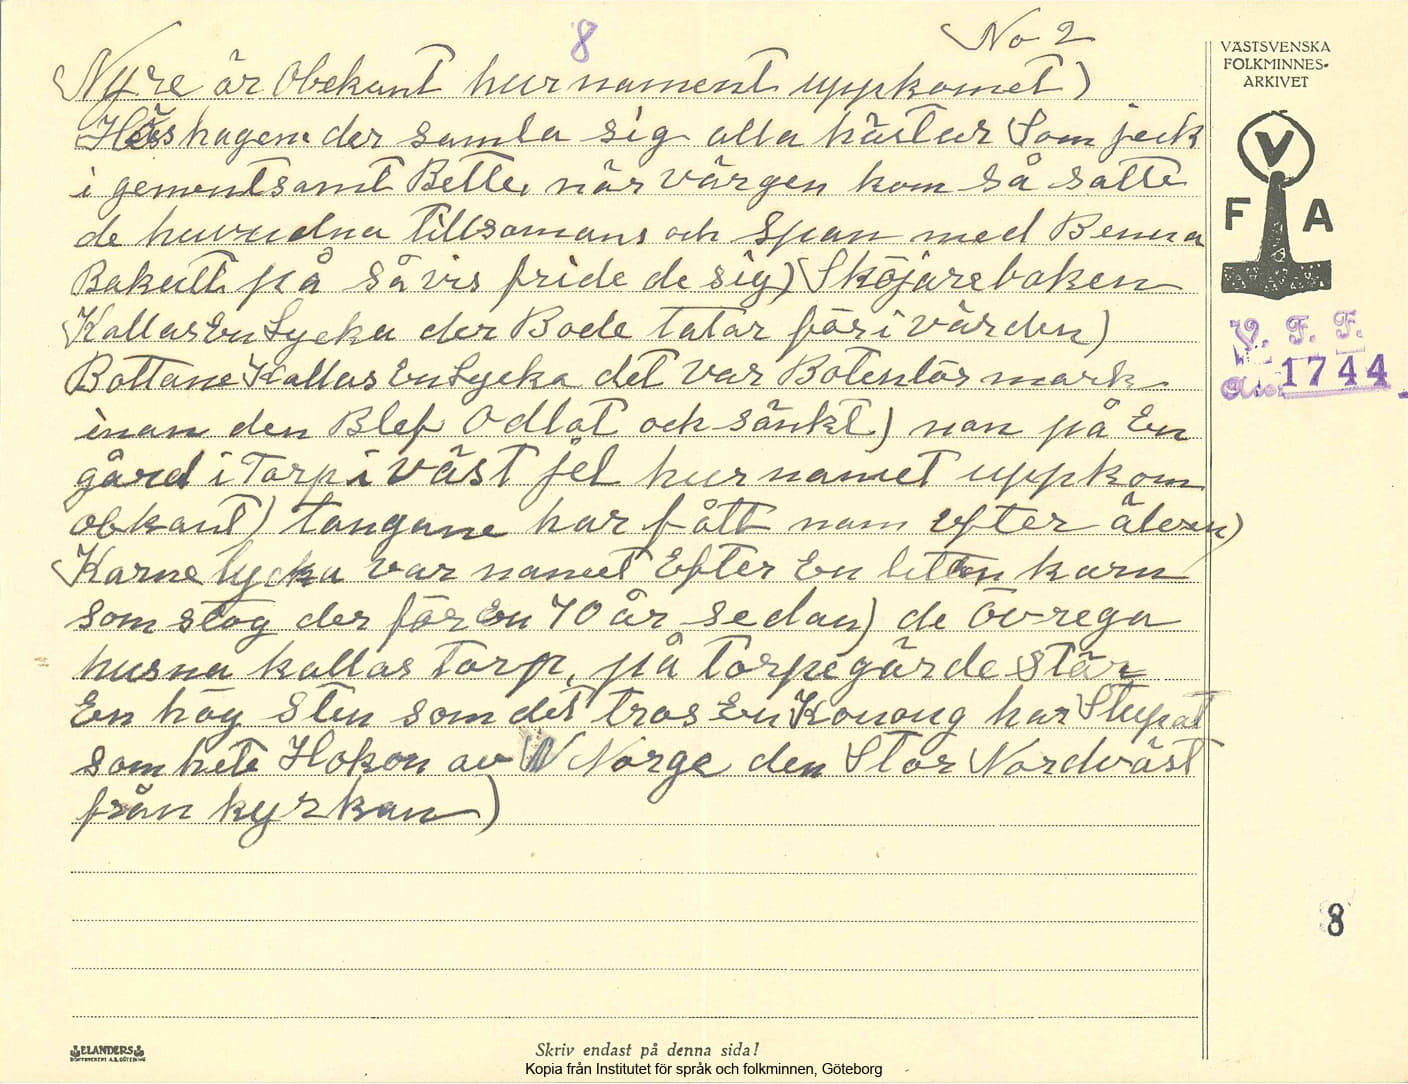 8
No 2
VÄSTSVENSKA
FOLKMINNES-
ARKIVET
Nyre är Obekant hur nament uppkomet)
Höshagene der samla sig alla hästar Som jeck
i gementsamt Bette, när värgen kom så satte
de huvudna tillsomans och Span med Benna
Bakutt på så vis fride de sig) Sköjarebaken
Kallas En Lycka der Bode tatar för i värden)
Bottane Kallas En Lycka det var Botenlös mark
inan den Blef Odlat och sänkt) nan på En
gård i Torp i väst jel hur namet uppkom
obkant) tangane har fått nam efter älven)
Karne lycka var namet Efter En litten karn
som stog der för En 70 år sedan) de Övrega
husna kallas Torp, på Torpegärde Står
En hög Sten som det tros En Konong har Stupat
som hete Hokon av Norge den Står Nordväst
från kyrkan)
V
F A
V. F. F.
Acc. 1744
8
ELANDERS
Skriv endast på denna sida!
Kopia från Institutet för språk och folkminnen, Göteborg